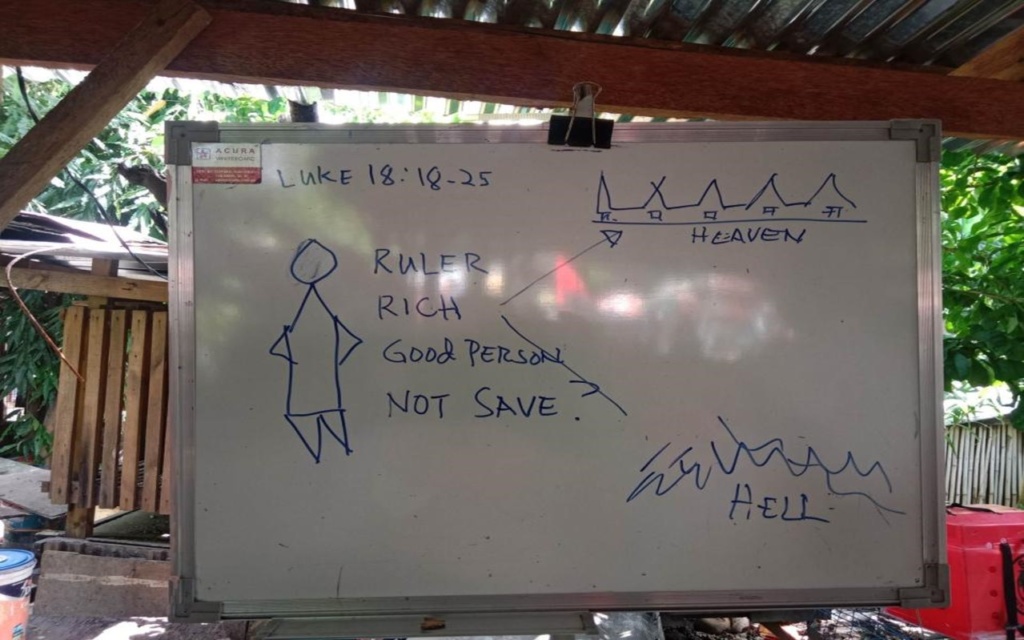 ACURA
WHITEBOARD
LUKE 18:18-25
HEAVEN
RULER
RICH
GOOD PERSON
NOT SAVE.
HELL